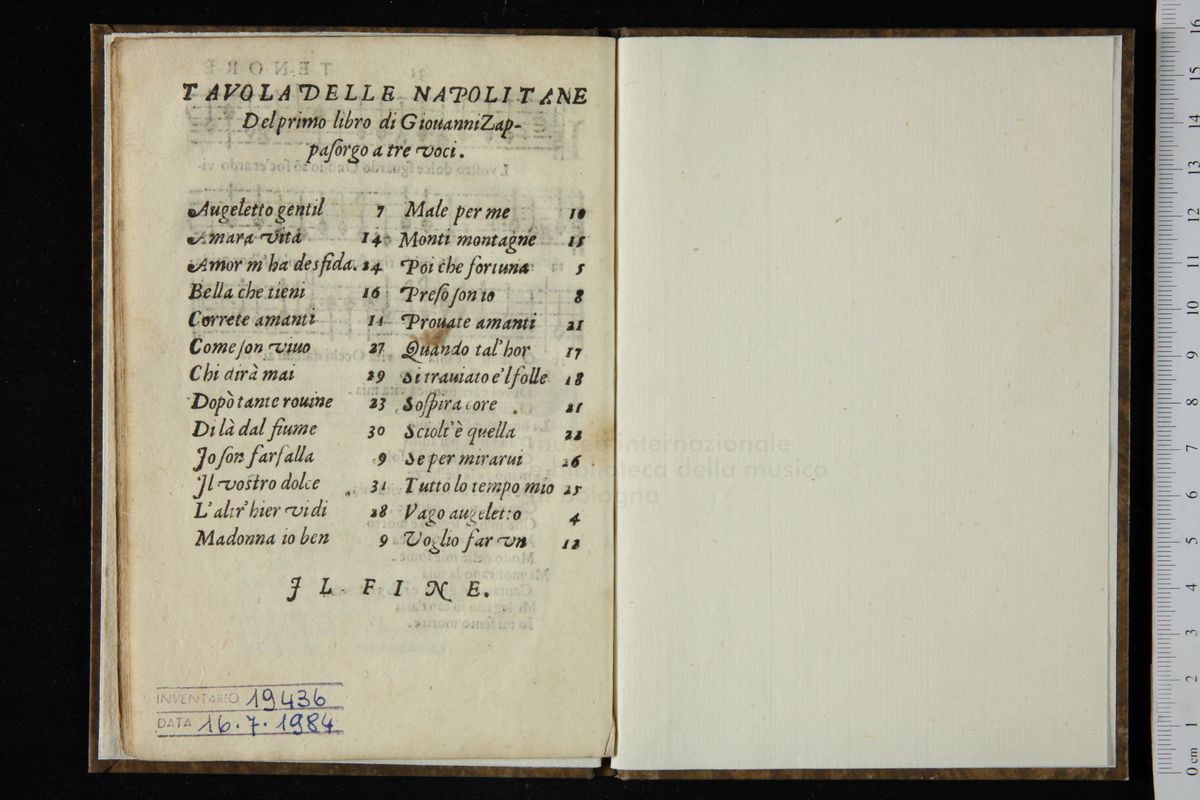 TAVOLA DELLE NAPOLITANE
Del primo libro di Giouanni Zap-
paſorgo a tre voci.
Augeletto gentil 7
Amara vita 14
Amor m'ha desfida. 24
Bella che tieni 16
Correte amanti 11
Come ſon viuo 27
Chi dirà mai 29
Dopò tante rouine 23
Di là dal fiume 30
Jo ſon farfalla 9
Jl vostro dolce 31
L'altr'hier vidi 28
Madonna io ben 9
Male per me 10
Monti montagne 15
Poi che fortuna 5
Preſo ſon io 8
Prouate amanti 21
Quando tal'hor 17
Si trauiato è'l folle 18
Soſpira core 21
Sciolt'è quella 22
Se per mirarui 26
Tutto lo tempo mio 25
Vago augeletto 4
Voglio far vn 12
JL FINE.
INVENTARIO 19436
DATA 16.7.1984
museo internazionale
e biblioteca della musica
di bologna
0 cm 1 2 3 4 5 6 7 8 9 10 11 12 13 14 15 16